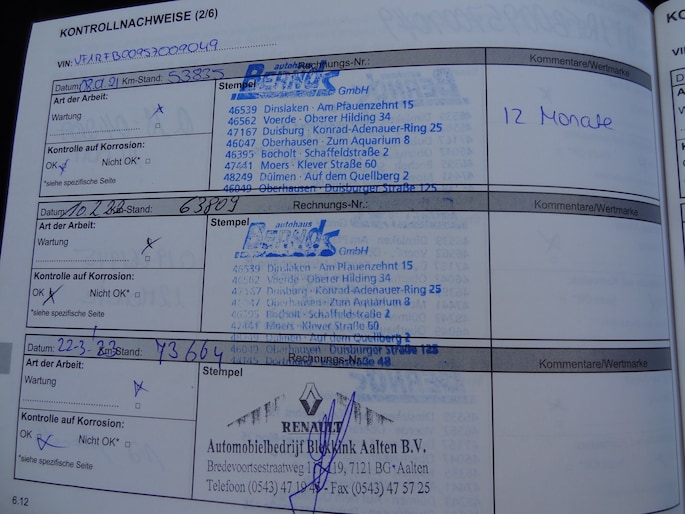 KONTROLLNACHWEISE (2/6)
VIN: VF1RFB00957009049
Datum: Km-Stand: 53835 Rechnungs-Nr.: Kommentare/Wertmarke
Art der Arbeit:
Wartung x
Kontrolle auf Korrosion:
OK Nicht OK*
*siehe spezifische Seite
Stempel
autohaus
Bernds
GmbH
46539 Dinslaken · Am Pfauenzehnt 15
46562 Voerde · Oberer Hilding 34
47167 Duisburg · Konrad-Adenauer-Ring 25
46047 Oberhausen · Zum Aquarium 8
46395 Bocholt · Schaffeldstraße 2
47441 Moers · Klever Straße 60
48249 Dülmen · Auf dem Quellberg 2
46049 Oberhausen · Duisburger Straße 125
12 Monate
Datum: 10.2.22 Km-Stand: 63809 Rechnungs-Nr.: Kommentare/Wertmarke
Art der Arbeit:
Wartung x
Kontrolle auf Korrosion:
OK x Nicht OK*
*siehe spezifische Seite
Stempel
autohaus
Bernds
GmbH
46539 Dinslaken · Am Pfauenzehnt 15
46562 Voerde · Oberer Hilding 34
47167 Duisburg · Konrad-Adenauer-Ring 25
46047 Oberhausen · Zum Aquarium 8
46395 Bocholt · Schaffeldstraße 2
47441 Moers · Klever Straße 60
Dülmen · Auf dem Quellberg 2
46049 Oberhausen · Duisburger Straße 125
48
Datum: 22-3- Km-Stand: 73664 Rechnungs-Nr.: Kommentare/Wertmarke
Art der Arbeit:
Wartung x
Kontrolle auf Korrosion:
OK x Nicht OK*
*siehe spezifische Seite
Stempel
RENAULT
Automobielbedrijf Aalten B.V.
Bredevoortsestraatweg 19, 7121 BG Aalten
Telefoon (0543) 47 19 - Fax (0543) 47 57 25
6.12